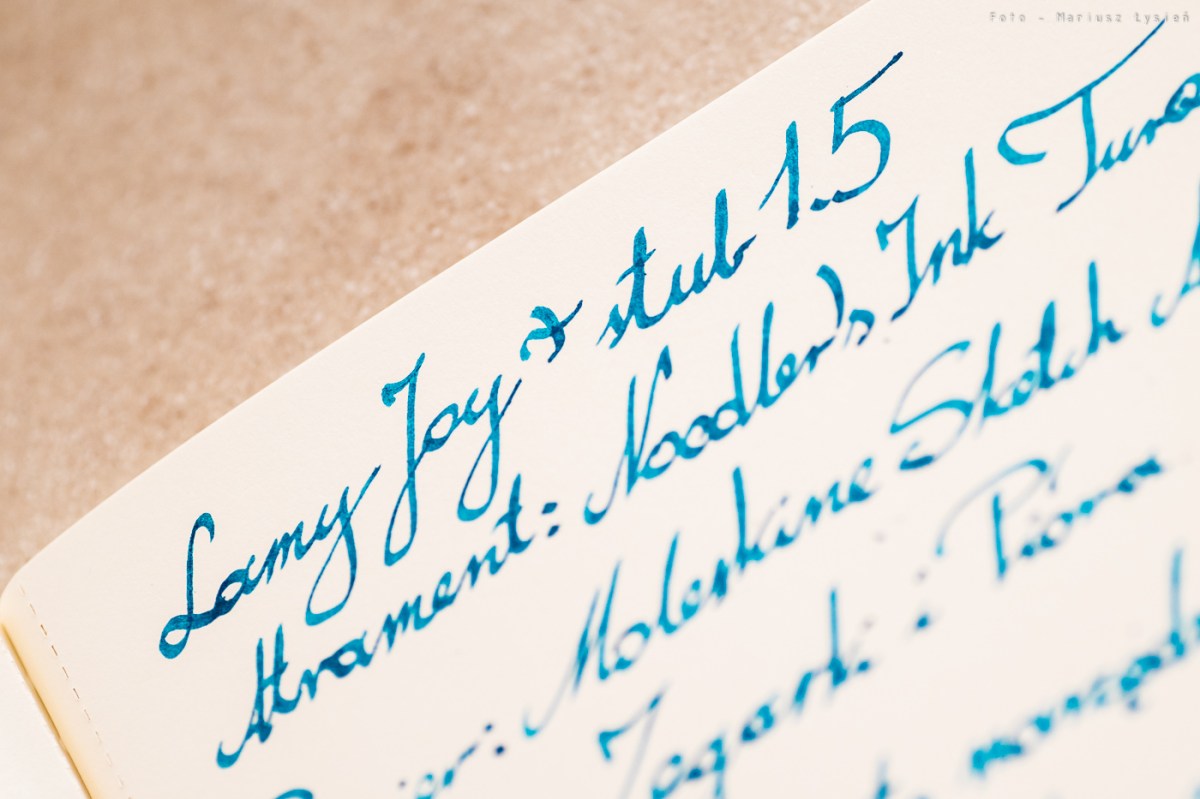 Foto - Mariusz Łysień
Lamy Joy z stub 1.5
Atrament: Noodler's Ink
Moleskine Sketch
Zegarki i Pióra